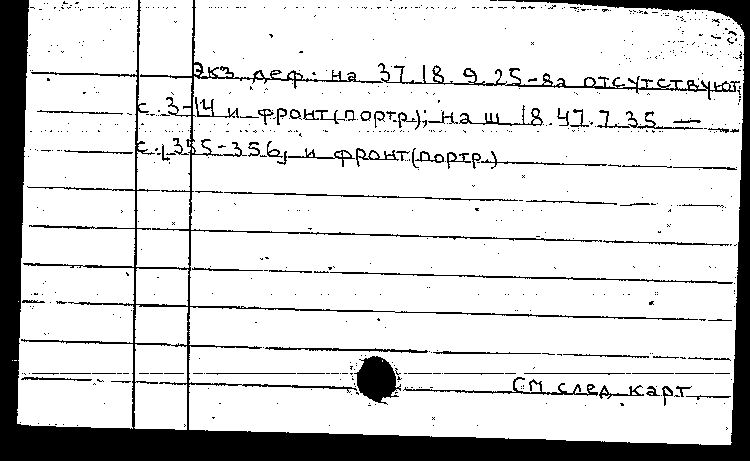 Экз. деф.: на 37.18.9.25-8а отсутствуют
с. 3-14 и фронт(портр.); на ш 18.47.7.35 —
с. 355-356, и фронт(портр.)
См след карт.